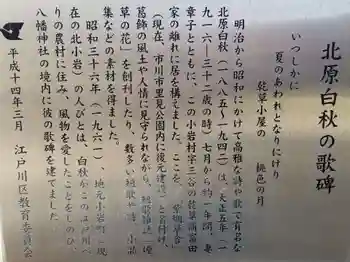 北原白秋の歌碑
いつしかに
夏のあわれとなりにけり
乾草小屋の　桃色の月
明治から昭和にかけて高雅な詩や歌で有名な
北原白秋（一八八五〜一九四二）は、大正五年（一
九一六――三十二歳の時）七月から約一年間、妻
章子とともに、この小岩村字三谷の乾草商富田
家の離れに居を構えました。ここを、「紫烟草舎」
（現在、市川市里見公園内に復元建設）と名付け、
葛飾の風土や人情に見守られながら、短歌雑誌「煙
草の花」を創刊したり、数多い短歌や詩、小品
集などの素材を得ました。
昭和三十六年（一九六一）、地元小岩町（現
在の北小岩）の人びとは、白秋がこの江戸川べ
りの農村に住み、風物を愛したことをしのび、
八幡神社の境内に彼の歌碑を建てました。
平成十四年三月　江戸川区教育委員会